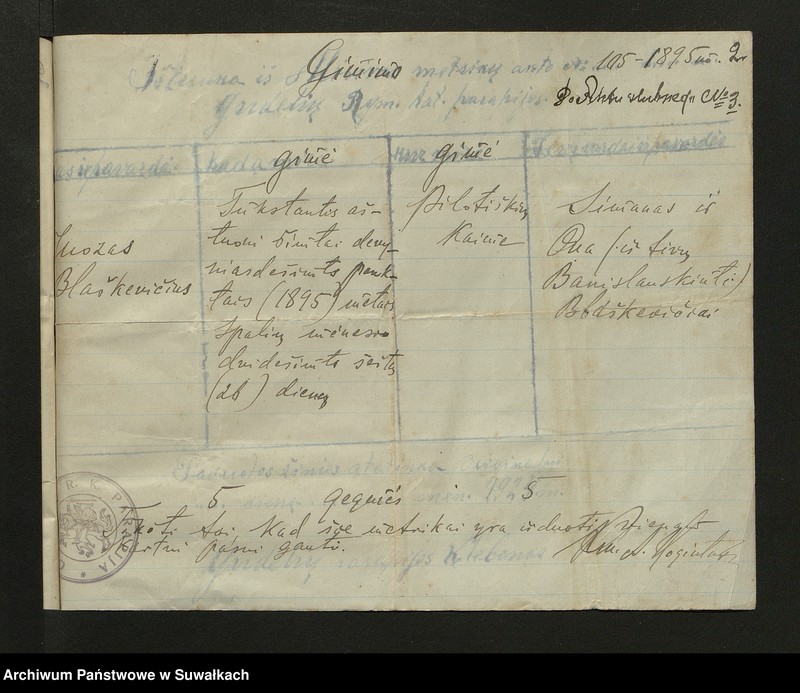 Ištrauka iš Gimimo metrikų akto № 105-1895 m. 2
Gudelių Rym. kat. parapijos № 3.
vardas ir pavardė
kada gimė
kur gimė
Tėvų vardai ir pavardė
Juozas
Blaškevičius
Tukstantis aš-
tuoni šimtai devy-
niasdešimts penk-
tais (1895) metais
spalių mėnesio
dvidešimts šeštą
(26) dieną
Pilotiškių
Kaime
Simanas ir
Ona (iš tėvų
Banislauskiutė)
Blaškevičiai
Tamotos žinios atatinka originalui
5 dieną gegužės mėn. 1925 m.
kad šie metrikai yra išduoti vien
pasui gauti.
Gudelių parapijos Klebonas
R. K. PARAPIJA
Archiwum Państwowe w Suwałkach